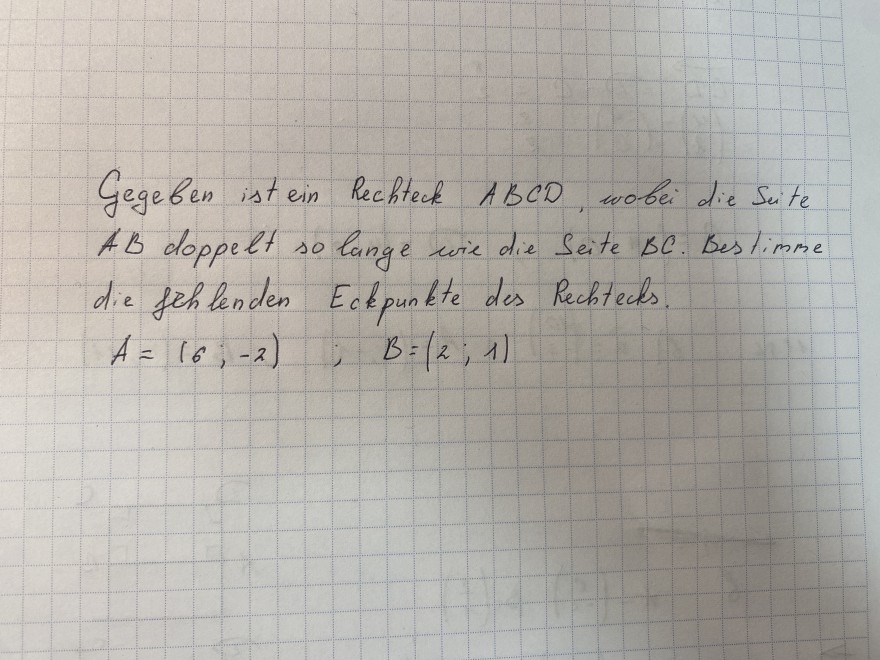 Gegeben ist ein Rechteck ABCD, wobei die Seite
AB doppelt so lange wie die Seite BC. Bestimme
die fehlenden Eckpunkte des Rechtecks.
A = (6 ; -2) ; B = (2 ; 1)